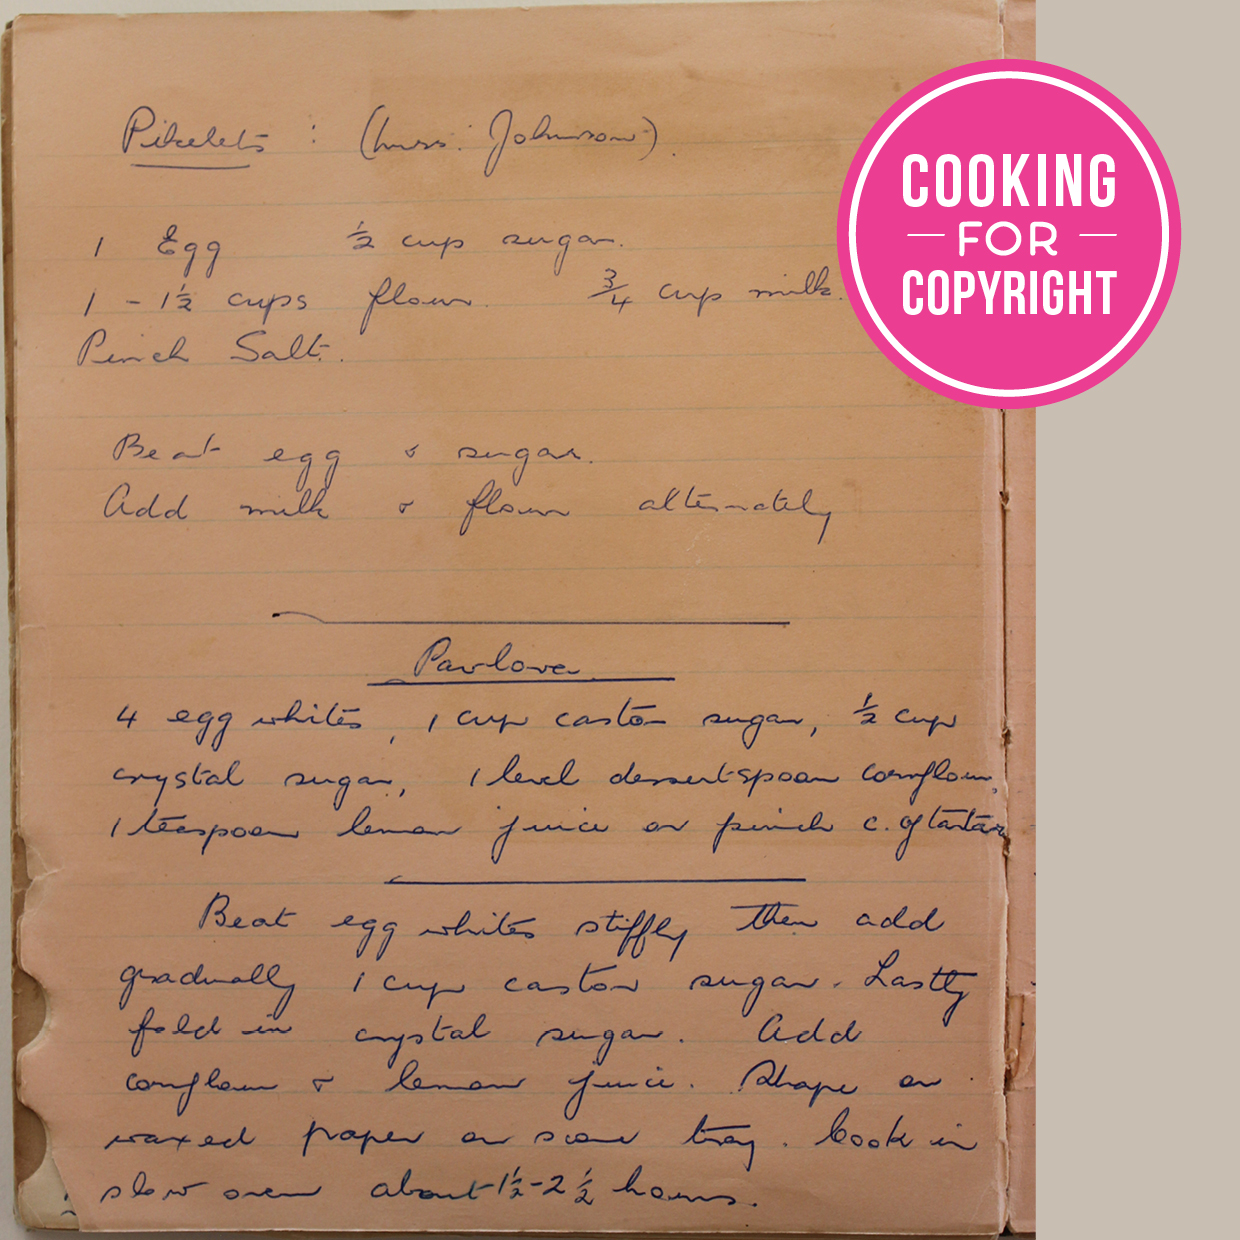 Pikelets : (Mrs. Johnson).
1 Egg ½ cup sugar.
1 - 1½ cups flour. ¾ cup milk.
Pinch Salt.
Beat egg & sugar.
Add milk & flour alternately
Pavlova
4 egg whites, 1 cup castor sugar, ½ cup
crystal sugar, 1 level dessertspoon cornflour,
1 teaspoon lemon juice or pinch c. of tartar
Beat egg whites stiffly then add
gradually 1 cup castor sugar. Lastly
fold in crystal sugar. Add
cornflour & lemon juice. Shape on
waxed paper on tray. Cook in
slow oven about 1½-2½ hours.
COOKING
FOR
COPYRIGHT